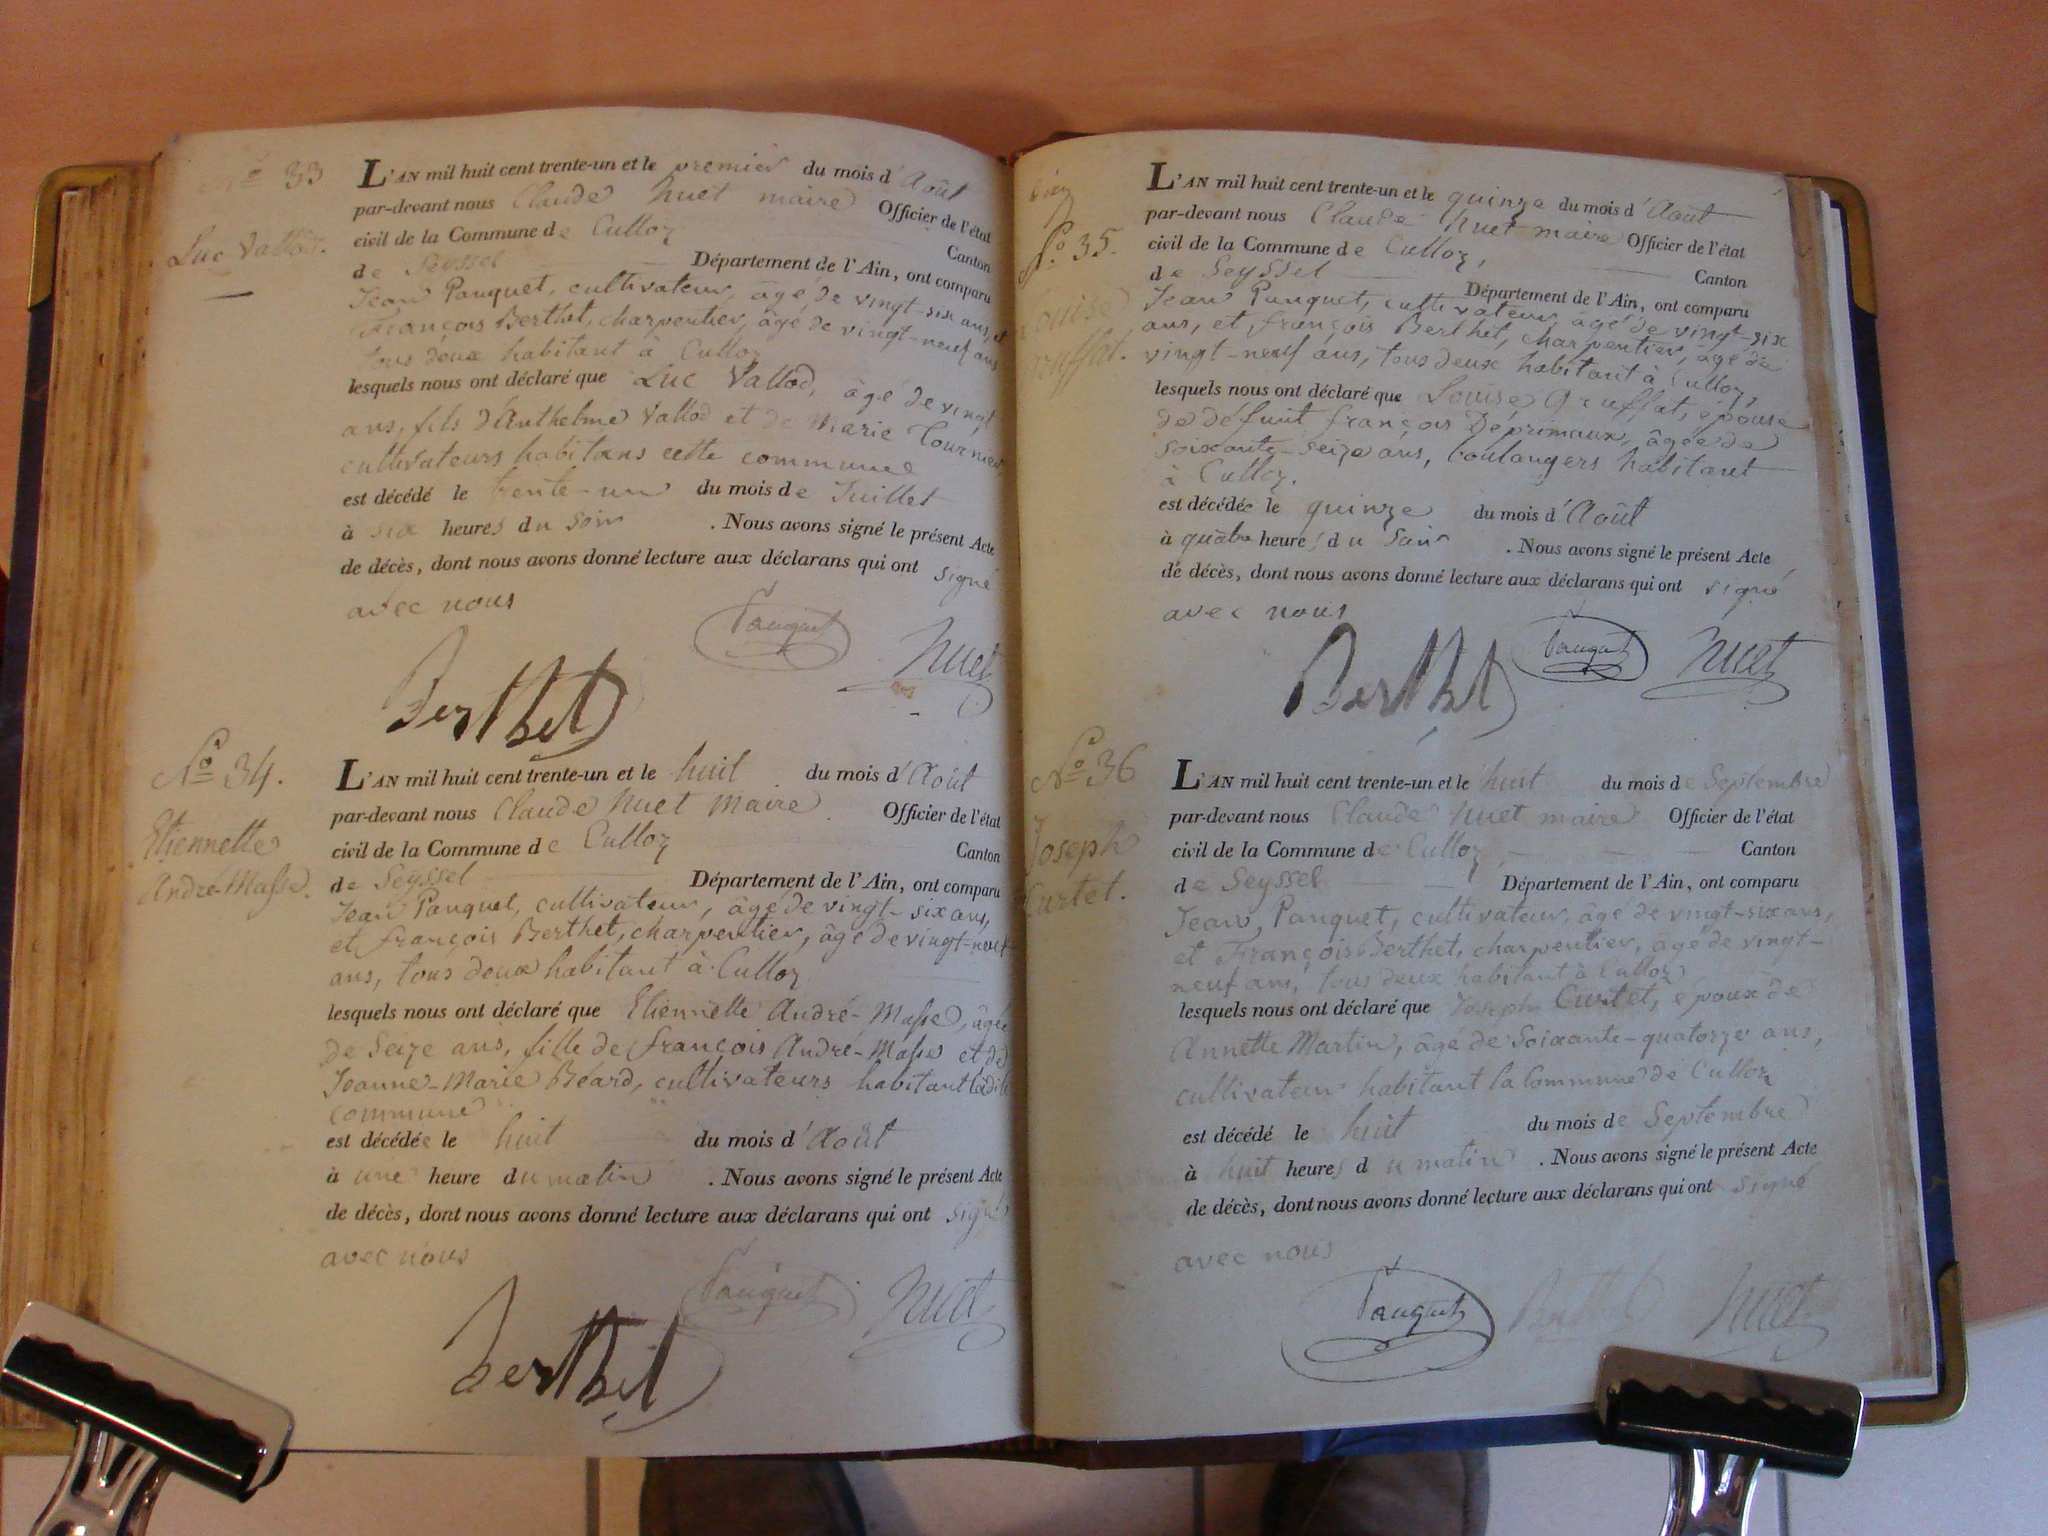 No 33
Luc Vallod.
L'AN mil huit cent trente-un et le premier du mois d'Août
par-devant nous Claude Nuet maire Officier de l'état
civil de la Commune de Culloz Canton
de Seyssel Département de l'Ain, ont comparu
Jean Pauquet, cultivateur, âgé de vingt-six ans, et
François Berthet, charpentier, âgé de vingt-neuf ans
tous deux habitant à Culloz
lesquels nous ont déclaré que Luc Vallod, âgé de vingt
ans, fils d'Anthelme Vallod et de Marie Tournier,
cultivateurs habitans cette commune
est décédé le trente-un du mois de Juillet
à six heures du soir . Nous avons signé le présent Acte
de décès, dont nous avons donné lecture aux déclarans qui ont signé
avec nous
Pauquet
Nuet
Berthet
No 34.
Etiennette
André-Masse.
L'AN mil huit cent trente-un et le huit du mois d'Août
par-devant nous Claude Nuet Maire Officier de l'état
civil de la Commune de Culloz Canton
de Seyssel Département de l'Ain, ont comparu
Jean Pauquet, cultivateur, âgé de vingt-six ans,
et françois Berthet, charpentier, âgé de vingt-neuf
ans, tous deux habitant à Culloz
lesquels nous ont déclaré que Etiennette André-Masse, âgée
de Seize ans, fille de françois André-Masse et de
Joanne-Marie Béard, cultivateurs habitant ladite
commune
est décédée le huit du mois d'Août
à une heure du matin . Nous avons signé le présent Acte
de décès, dont nous avons donné lecture aux déclarans qui ont signé
avec nous
Pauquet
Nuet
Berthet
No 35.
Louise
Gruffat.
L'AN mil huit cent trente-un et le quinze du mois d'Août
par-devant nous Claude Nuet maire Officier de l'état
civil de la Commune de Culloz, Canton
de Seyssel Département de l'Ain, ont comparu
Jean Pauquet, cultivateur, âgé de vingt-six
ans, et françois Berthet, charpentier, âgé de
vingt-neuf ans, tous deux habitant à Culloz,
lesquels nous ont déclaré que Louise Gruffat, épouse
de défunt françois Déprimaux, âgée de
soixante-seize ans, boulangers habitant
à Culloz.
est décédée le quinze du mois d'Août
à quatre heures du Soir . Nous avons signé le présent Acte
de décès, dont nous avons donné lecture aux déclarans qui ont signé
avec nous
Pauquet
Nuet
Berthet
No 36
Joseph
Curtet.
L'AN mil huit cent trente-un et le huit du mois de Septembre
par-devant nous Claude Nuet maire Officier de l'état
civil de la Commune de Culloz Canton
de Seyssel Département de l'Ain, ont comparu
Jean Pauquet, cultivateur, âgé de vingt-six ans,
et François Berthet, charpentier, âgé de vingt-
neuf ans, tous deux habitant à Culloz
lesquels nous ont déclaré que Joseph Curtet, époux de
Annette Martin, âgé de Soixante-quatorze ans,
cultivateur habitant la Commune de Culloz
est décédé le huit du mois de Septembre
à huit heures du matin . Nous avons signé le présent Acte
de décès, dont nous avons donné lecture aux déclarans qui ont signé
avec nous
Pauquet
Berthet
Nuet